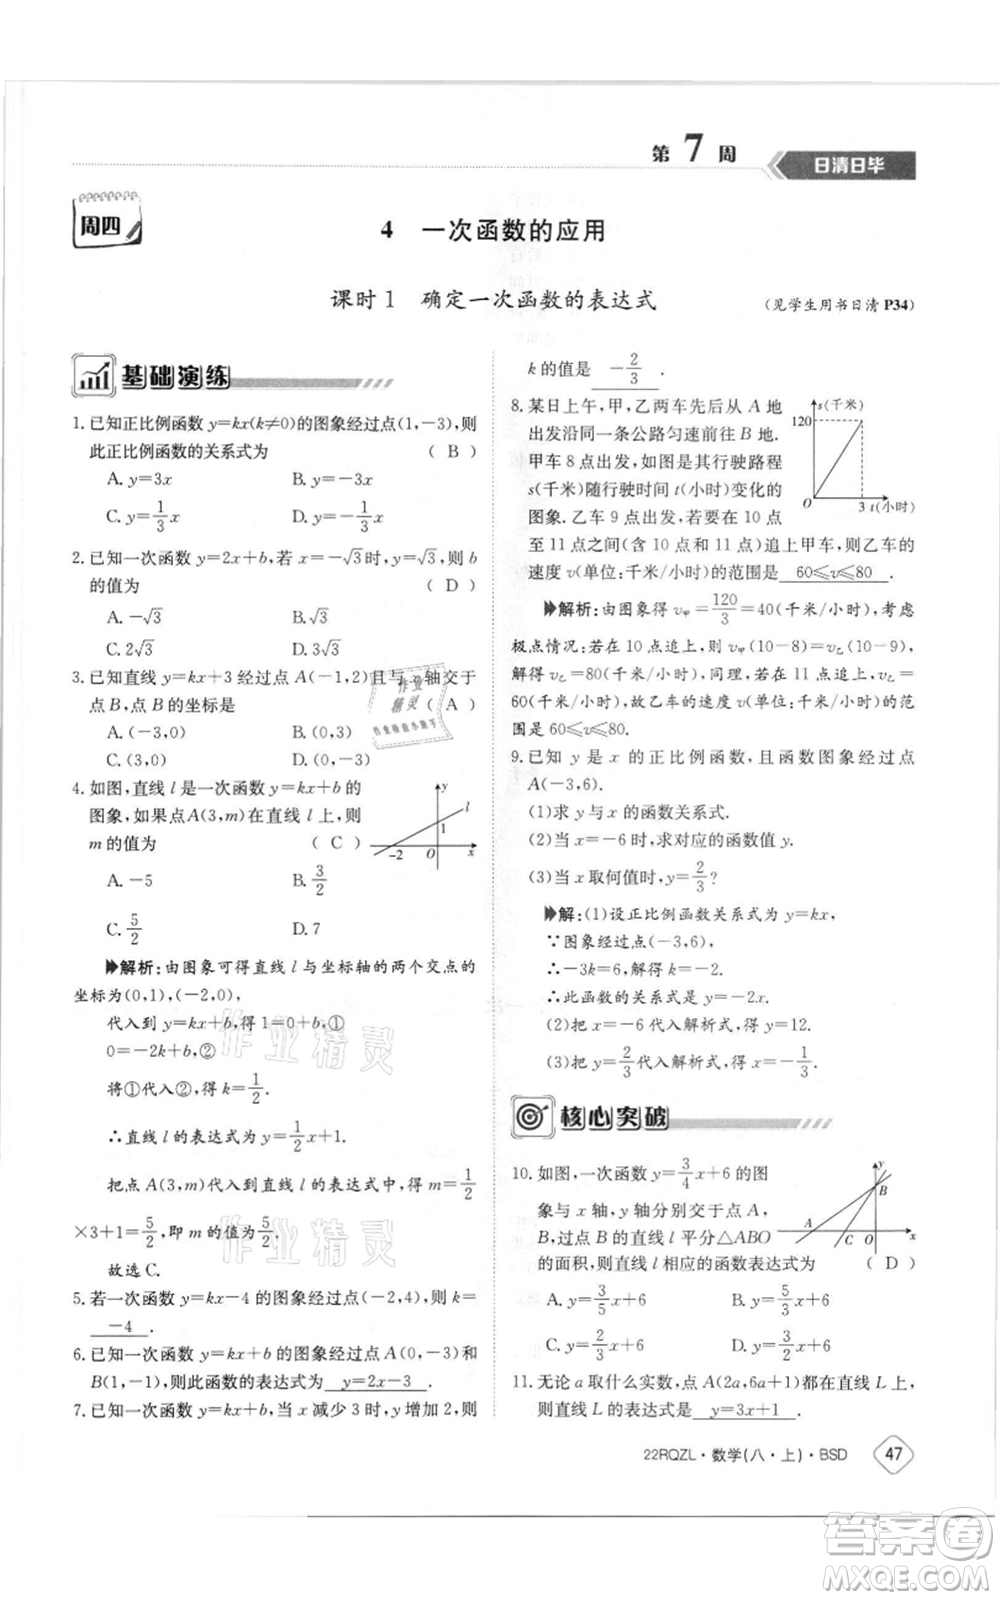 第7周
日清日毕
周四
4 一次函数的应用
课时1 确定一次函数的表达式
(见学生用书日清P34)
基础演练
1.已知正比例函数y=kx(k≠0)的图象经过点(1,-3),则
此正比例函数的关系式为 ( B )
A.y=3x B.y=-3x
C.y=1/3x D.y=-1/3x
2.已知一次函数y=2x+b,若x=-√3时,y=√3,则b
的值为 ( D )
A.-√3 B.√3
C.2√3 D.3√3
3.已知直线y=kx+3经过点A(-1,2)且与 轴交于
点B,点B的坐标是 ( A )
A.(-3,0) B.(0,3)
C.(3,0) D.(0,-3)
4.如图,直线l是一次函数y=kx+b的
图象,如果点A(3,m)在直线l上,则
m的值为 ( C )
A.-5 B.3/2
C.5/2 D.7
y
l
1
-2 O x
解析:由图象可得直线l与坐标轴的两个交点的
坐标为(0,1),(-2,0),
代入到y=kx+b,得1=0+b,①
0=-2k+b,②
将①代入②,得k=1/2.
∴直线l的表达式为y=1/2x+1.
把点A(3,m)代入到直线l的表达式中,得m=1/2
×3+1=5/2,即m的值为5/2.
故选C.
5.若一次函数y=kx-4的图象经过点(-2,4),则k=
-4.
6.已知一次函数y=kx+b的图象经过点A(0,-3)和
B(1,-1),则此函数的表达式为 y=2x-3.
7.已知一次函数y=kx+b,当x减少3时,y增加2,则
k的值是 -2/3.
8.某日上午,甲,乙两车先后从A地
出发沿同一条公路匀速前往B地.
甲车8点出发,如图是其行驶路程
s(千米)随行驶时间t(小时)变化的
图象.乙车9点出发,若要在10点
至11点之间(含10点和11点)追上甲车,则乙车的
速度v(单位:千米/小时)的范围是 60≤v≤80.
s(千米)
120
O 3 t(小时)
解析:由图象得v甲=120/3=40(千米/小时),考虑
极点情况:若在10点追上,则v甲(10-8)=v乙(10-9),
解得v乙=80(千米/小时),同理,若在11点追上,v乙=
60(千米/小时),故乙车的速度(千米/小时)的范
围是60≤v≤80.
9.已知y是x的正比例函数,且函数图象经过点
A(-3,6).
(1)求y与x的函数关系式.
(2)当x=-6时,求对应的函数值y.
(3)当x取何值时,y=2/3?
解:(1)设正比例函数关系式为y=kx,
∵图象经过点(-3,6),
∴-3k=6,解得k=-2.
∴此函数的关系式为y=-2x.
(2)把x=-6代入解析式,得y=12.
(3)把y=2/3代入解析式,得x=-1/3.
核心突破
10.如图,一次函数y=3/4x+6的图
象与x轴,y轴分别交于点A,
B,过点B的直线l平分△ABO
的面积,则直线l相应的函数表达式为 ( D )
A.y=3/5x+6 B.y=5/3x+6
C.y=2/3x+6 D.y=3/2x+6
y
B
A C O x
11.无论a取什么实数,点A(2a,6a+1)都在直线L上,
则直线L的表达式是 y=3x+1.
22RQZL·数学(八·上)·BSD 47
作业精灵
作业精灵
作业精灵
答案圈
MXQE.COM